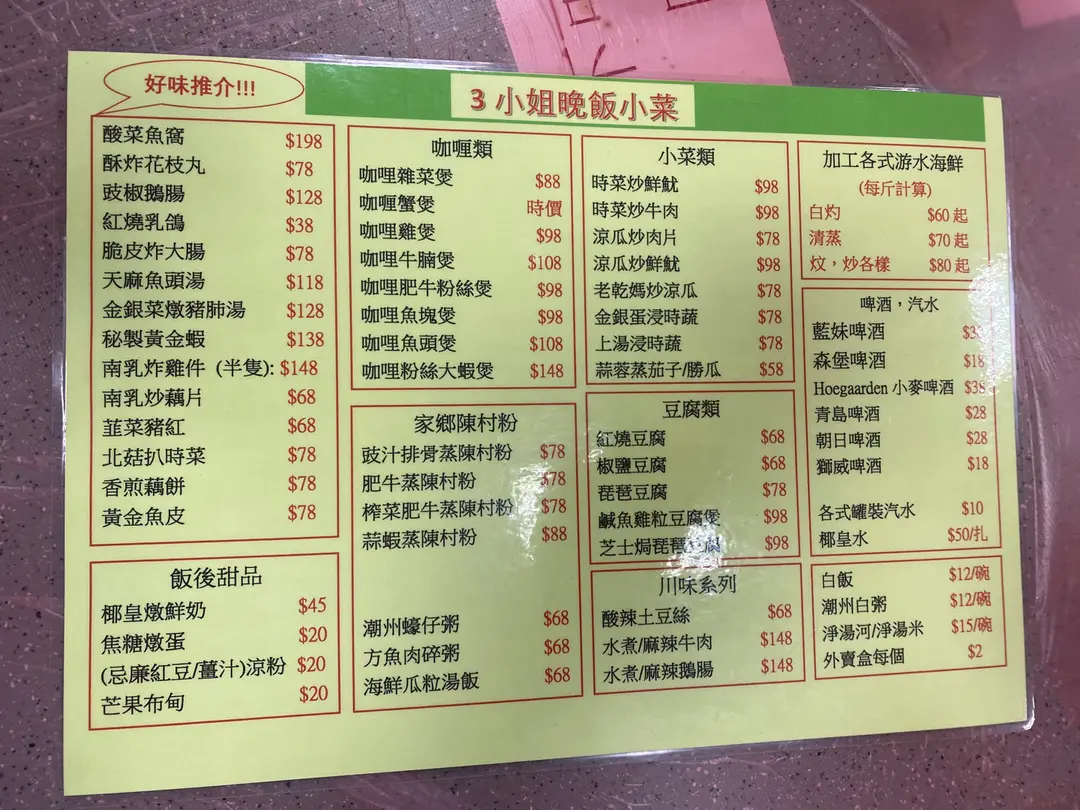 好味推介!!!
3 小姐晚飯小菜
酸菜魚窩 $198
酥炸花枝丸 $78
豉椒鵝腸 $128
紅燒乳鴿 $38
脆皮炸大腸 $78
天麻魚頭湯 $118
金銀菜燉豬肺湯 $128
秘製黃金蝦 $138
南乳炸雞件 (半隻): $148
南乳炒藕片 $68
韮菜豬紅 $68
北菇扒時菜 $78
香煎藕餅 $78
黃金魚皮 $78
飯後甜品
椰皇燉鮮奶 $45
焦糖燉蛋 $20
(忌廉紅豆/薑汁)涼粉 $20
芒果布甸 $20
咖喱類
咖哩雜菜煲 $88
咖喱蟹煲 時價
咖哩雞煲 $98
咖哩牛腩煲 $108
咖哩肥牛粉絲煲 $98
咖哩魚塊煲 $98
咖哩魚頭煲 $108
咖哩粉絲大蝦煲 $148
家鄉陳村粉
豉汁排骨蒸陳村粉 $78
肥牛蒸陳村粉 $78
榨菜肥牛蒸陳村粉 $78
蒜蝦蒸陳村粉 $88
潮州蠔仔粥 $68
方魚肉碎粥 $68
海鮮瓜粒湯飯 $68
小菜類
時菜炒鮮魷 $98
時菜炒牛肉 $98
涼瓜炒肉片 $78
涼瓜炒鮮魷 $98
老乾媽炒涼瓜 $78
金銀蛋浸時蔬 $78
上湯浸時蔬 $78
蒜蓉蒸茄子/勝瓜 $58
豆腐類
紅燒豆腐 $68
椒鹽豆腐 $68
琵琶豆腐 $78
鹹魚雞粒豆腐煲 $98
芝士焗琵琶豆腐 $98
川味系列
酸辣土豆絲 $68
水煮/麻辣牛肉 $148
水煮/麻辣鵝腸 $148
加工各式游水海鮮
(每斤計算)
白灼 $60 起
清蒸 $70 起
炆，炒各樣 $80 起
啤酒，汽水
藍妹啤酒
森堡啤酒 $18
Hoegaarden 小麥啤酒 $38
青島啤酒 $28
朝日啤酒 $28
獅威啤酒 $18
各式罐裝汽水 $10
椰皇水 $50/扎
白飯 $12/碗
潮州白粥 $12/碗
淨湯河/淨湯米 $15/碗
外賣盒每個 $2